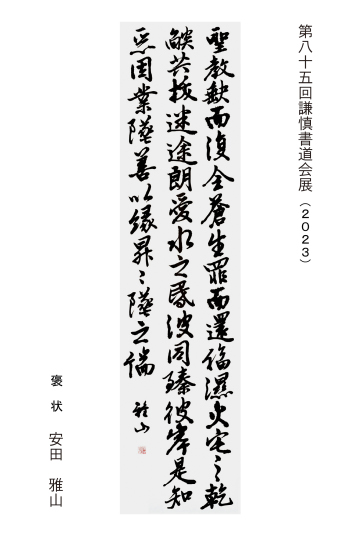 第八十五回謙慎書道会展（２０２３）
聖教缺而復全蒼生罪而還福濕火宅之乾
燄共拔迷途朗愛水之昏波同臻彼岸是知
惡因業墜善以縁昇〻墜之端 雅山
褒状 安田 雅山